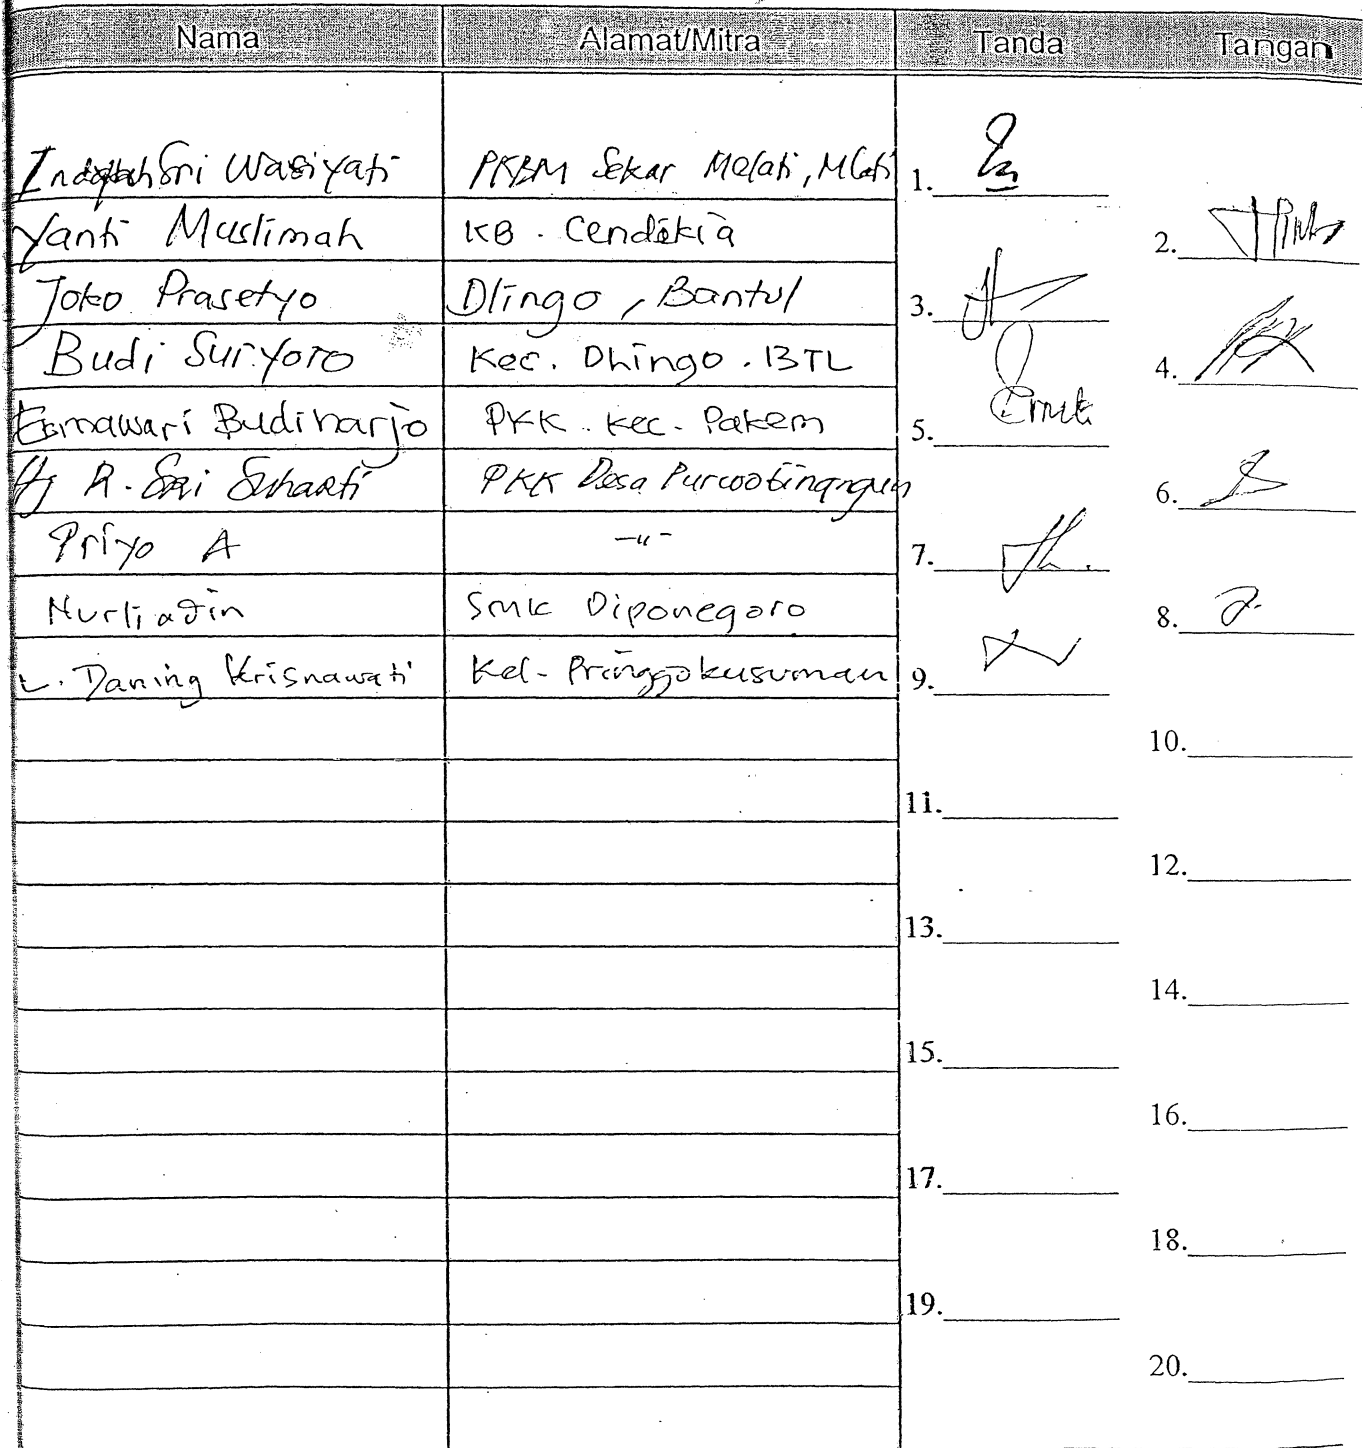 Nama Alamat/Mitra Tanda Tangan
Sri Wasiyati PKBM Sekar Melati, Mlati 1.
Yanti Muslimah KB. Cendekia 2.
Joko Prasetyo Dlingo, Bantul 3.
Budi Suryoro Kec. Dhingo. BTL 4.
Budiharjo PKK. Kec. Pakem 5.
Hj R. Sri Suharti PKK Desa 6.
Priyo A -"- 7.
SMK Diponegoro 8.
L. Daning Krisnawati Kel- Pringgokusuman 9.
10.
11.
12.
13.
14.
15.
16.
17.
18.
19.
20.